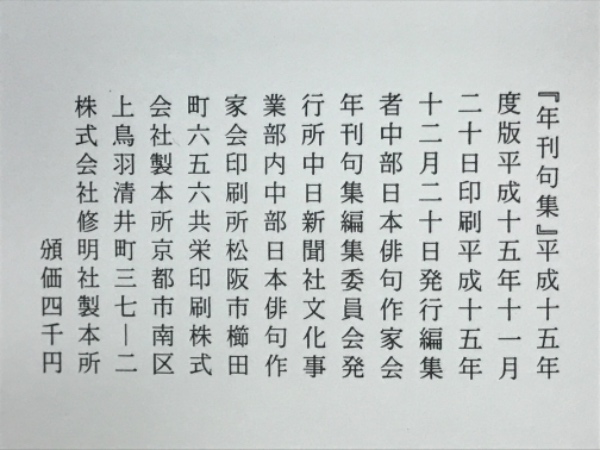 『年刊句集』平成十五年
度版平成十五年十一月
二十日印刷平成十五年
十二月二十日発行編集
者中部日本俳句作家会
年刊句集編集委員会発
行所中日新聞社文化事
業部内中部日本俳句作
家会印刷所松阪市櫛田
町六五六共栄印刷株式
会社製本所京都市南区
上鳥羽清井町三七―二
株式会社修明社製本所
頒価四千円